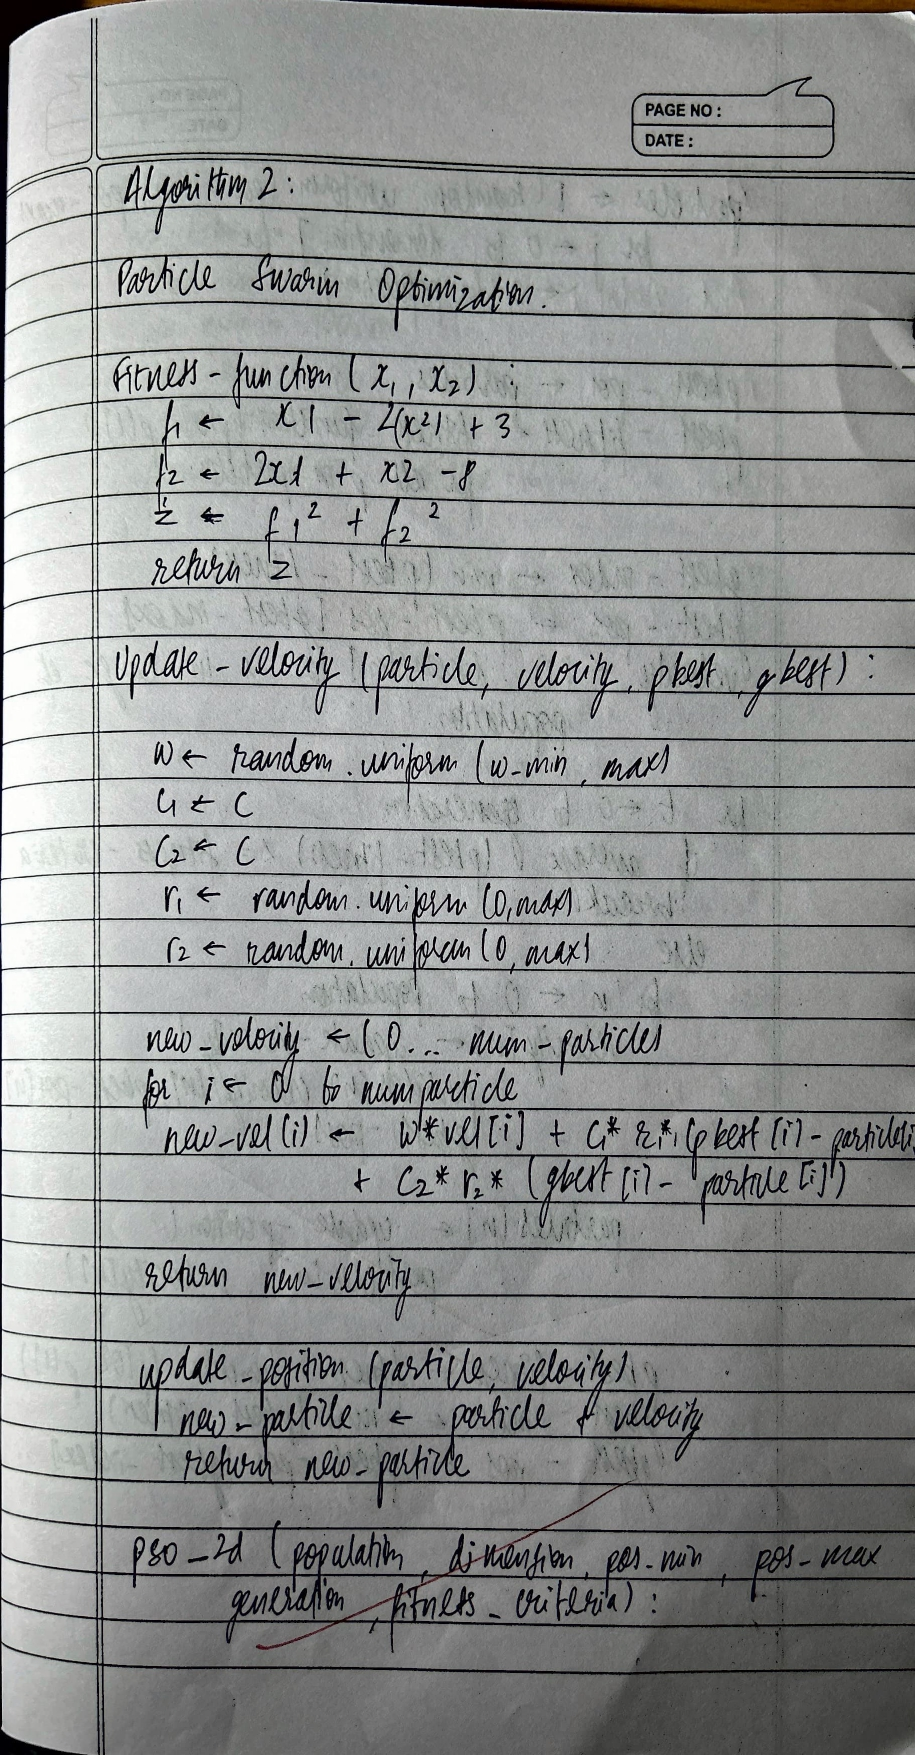 PAGE NO :
DATE :
Algorithm 2 :
Particle Swarm Optimization.
Fitness - function ( x₁ , x₂ ) :
f₁ ← x1 - 2(x2) + 3
f₂ ← 2x1 + x2 - 8
z ← f₁² + f₂²
return z
Update - velocity (particle, velocity, pbest, gbest) :
w ← random . uniform (w-min, max)
C₁ ← C
C₂ ← C
r₁ ← random . uniform (0, max)
r₂ ← random . uniform (0, max)
new_velocity ← (0... num - particles
for i ← 0 to numparticle
new_vel(i) ← w*vel[i] + C₁* r₁* (pbest [i] - particle[i
+ C₂* r₂* (gbest [i] - particle [i])
return new_velocity
update - position (particle, velocity)
new - particle ← particle + velocity
return new - particle
pso _ 2d (population, dimension, pos-min, pos-max
generation, fitness - criteria) :